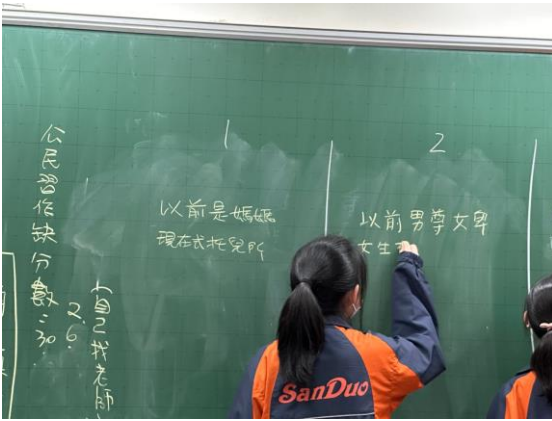 公民習作缺分數:30
2. 6.
(自己找老師
1
以前是媽媽
現在或托兒所
2
以前男尊女卑
女生
SanDuo